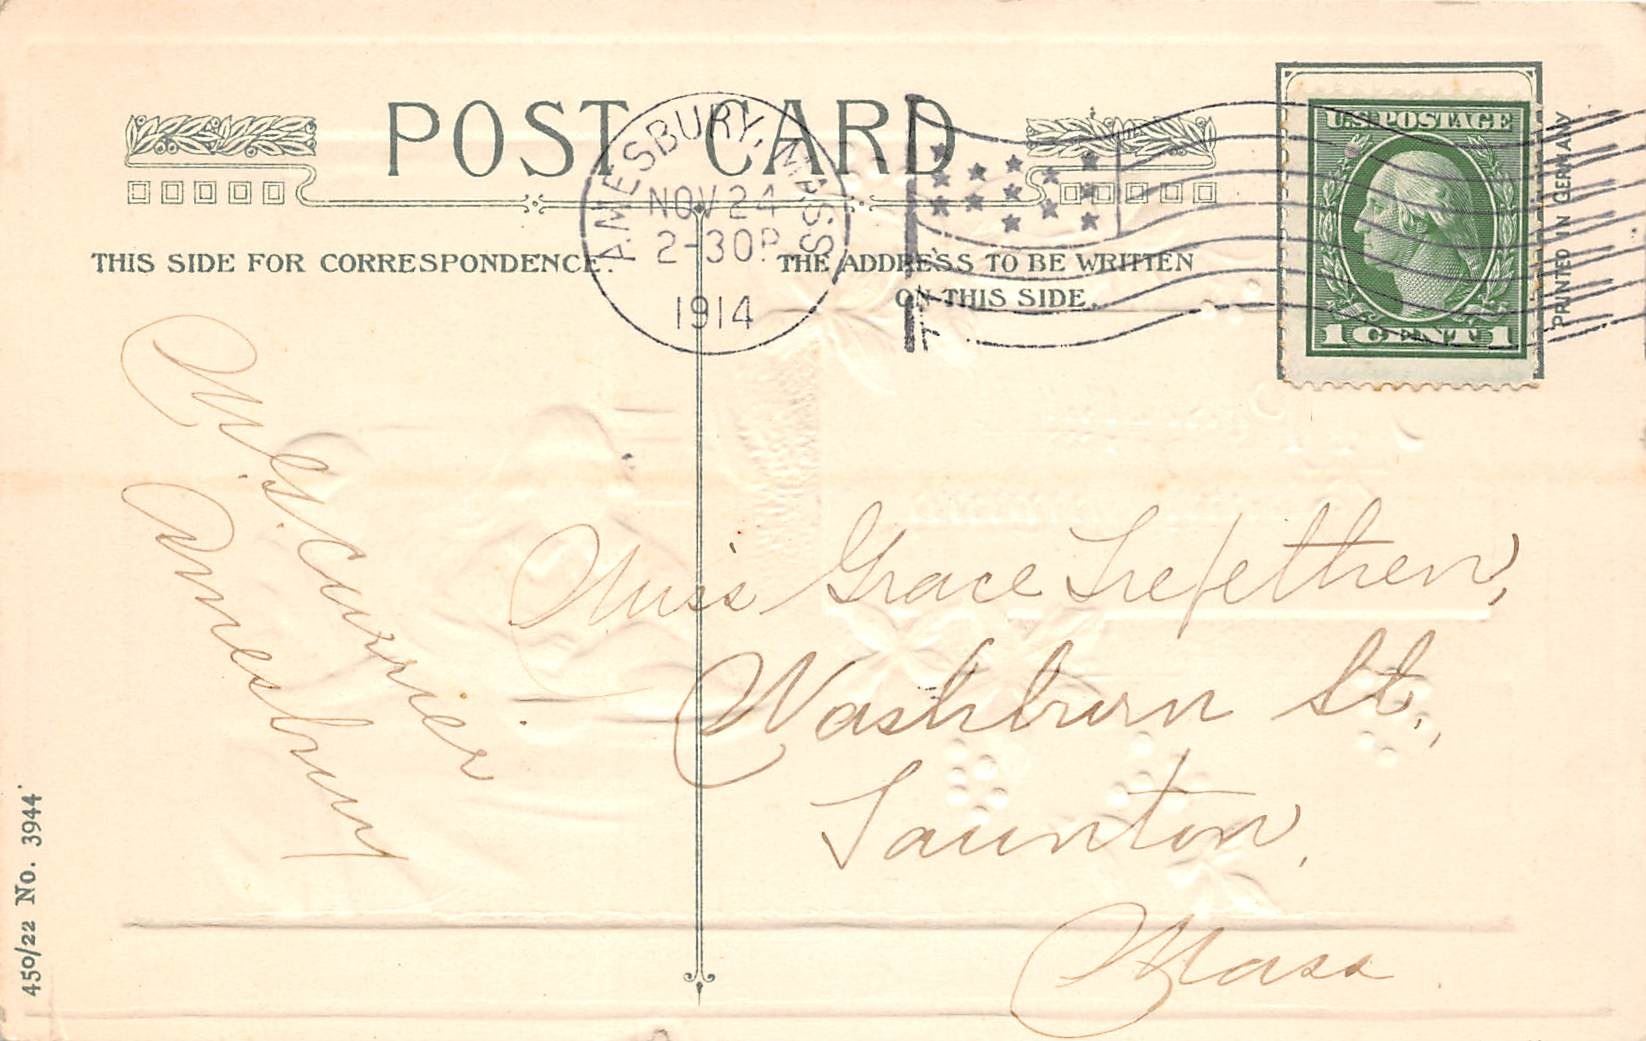 POST CARD
AMESBURY, MASS
NOV 24
2-30P
1914
U.S. POSTAGE
1 CENT 1
PRINTED IN GERMANY
THIS SIDE FOR CORRESPONDENCE.
THE ADDRESS TO BE WRITTEN
ON THIS SIDE.
Mrs. Currier
Amesbury
Miss Grace Trefethen,
Washburn St.,
Taunton,
Mass.
450/22 No. 3944